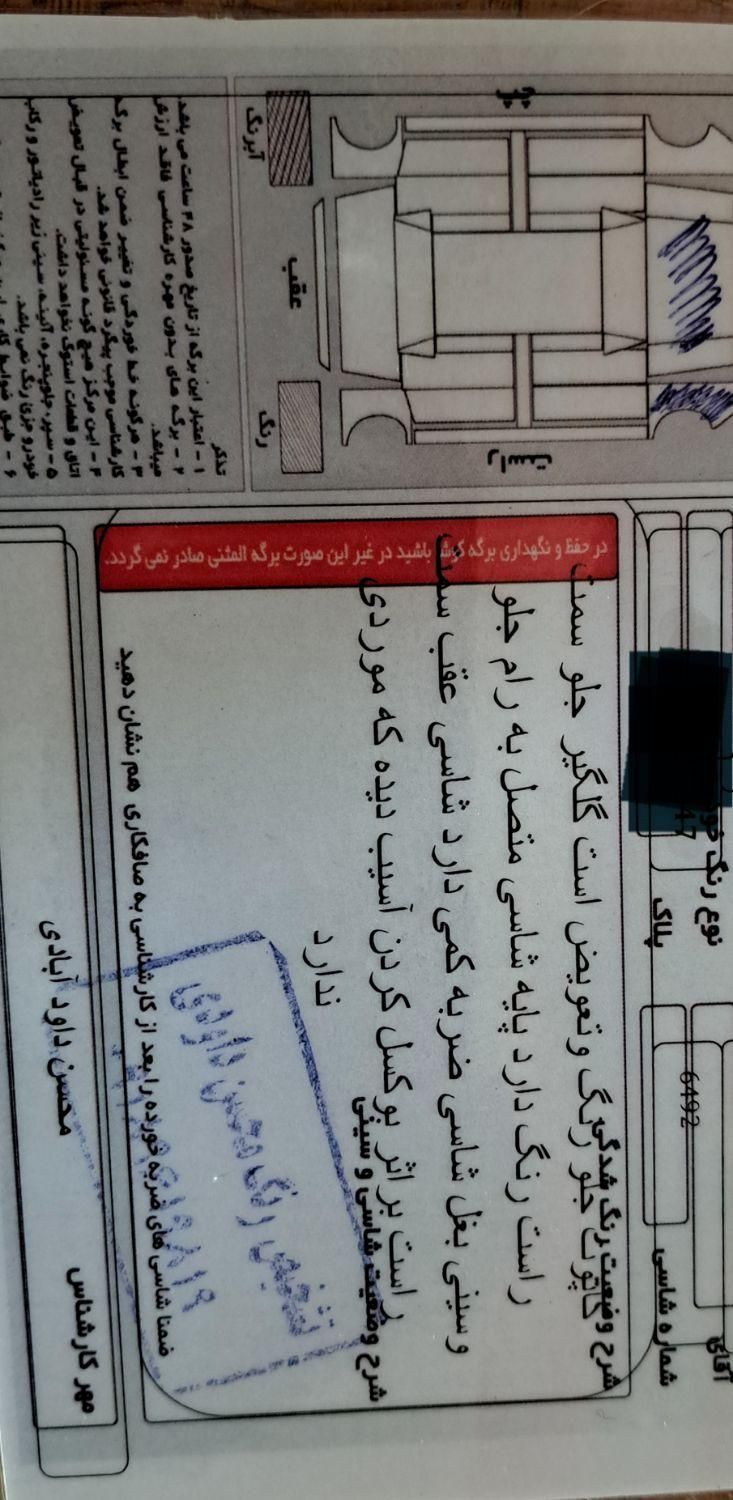 نوع رنگ
آقای
پلاک
47
شماره شاسی
6492
شرح وضعیت رنگ شدگی
کاپوت جلو رنگ و تعویض است گلگیر جلو سمت
راست رنگ دارد پایه شاسی متصل به رام جلو
و سینی بغل شاسی ضربه کمی دارد شاسی عقب سمت
شرح وضعیت شاسی و سینی
راست بر اثر بوکسل کردن آسیب دیده که موردی
ندارد
تشخیص رنگ محسن داودی
ضمنا شاسی های ضربه خورده را بعد از کارشناسی به صافکاری هم نشان دهید
مهر کارشناس
محسن داود آبادی
در حفظ و نگهداری برگه کوشا باشید در غیر این صورت برگه المثنی صادر نمی گردد.
راست
عقب
رنگ
آبرنگ
تذکر
۱ - اعتبار این برگه از تاریخ صدور ۴۸ ساعت می باشد.
۲ - برگه های بدون مهره کارشناسی فاقد ارزش
میباشد.
۳ - هرگونه خط خوردگی و تغییر ضمن ابطال برگه
کارشناسی موجب پیگرد قانونی خواهد شد.
۴ - این مرکز هیچ گونه مسئولیتی در قبال تعویض
اتاق و قطعات استوک نخواهد داشت.
۵ - سپر، جلوپنجره، آئینه، سینی زیر رادیاتور و رکاب
خودرو جزئ رنگ نمی باشد.
۶ - طبق ضوابط